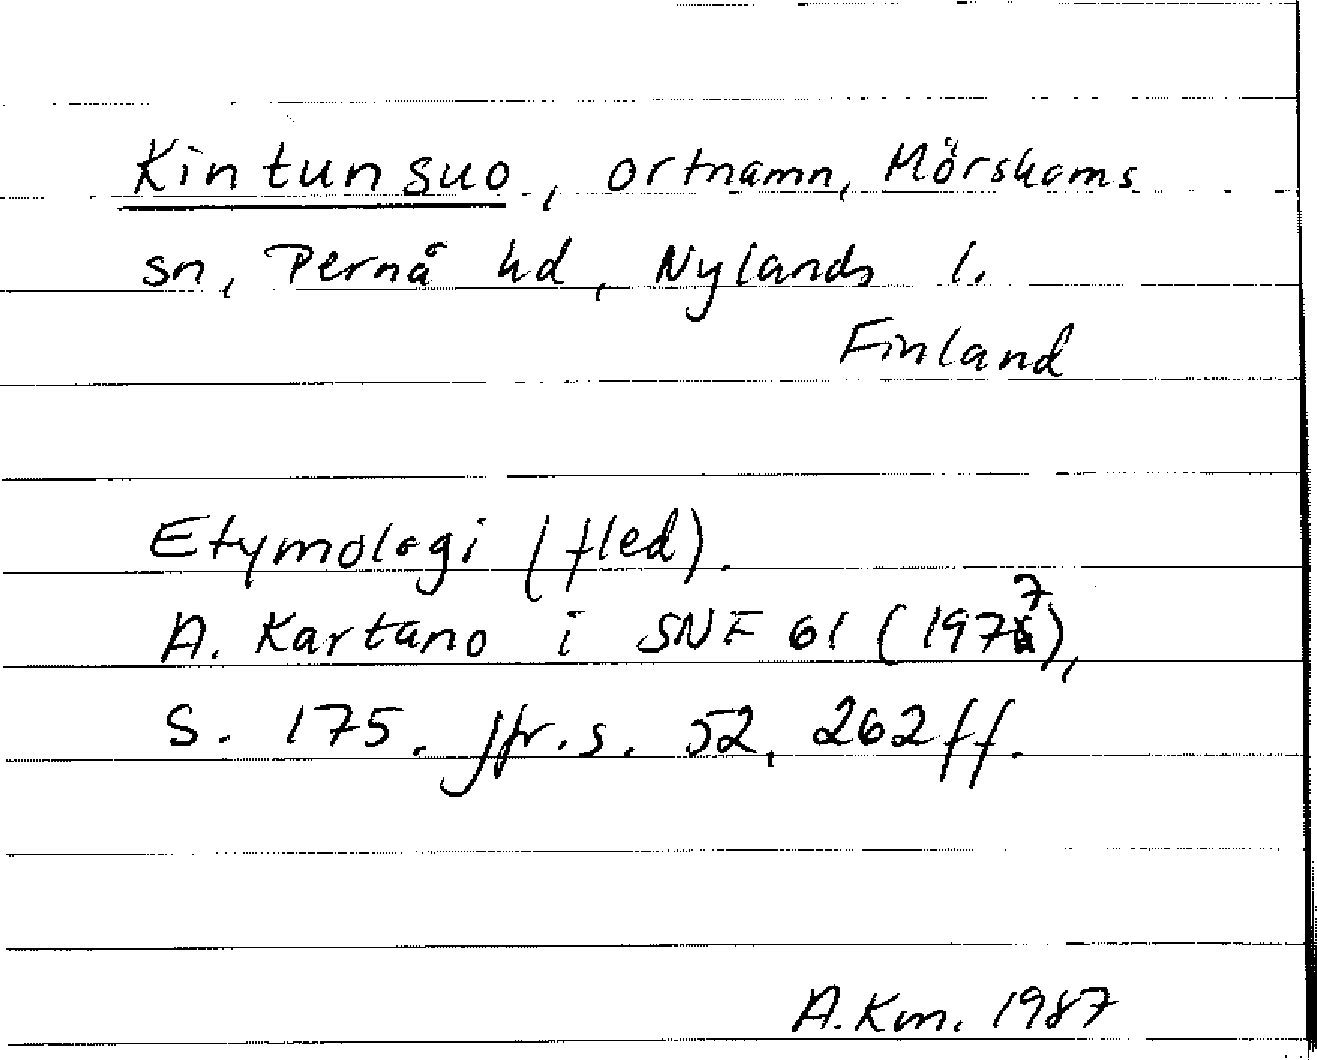 Kintunsuo, ortnamn, Mörskoms
sn, Pernå hd, Nylands l.
Finland
Etymologi (fled).
A. Kartano i SNF 61 (1977),
s. 175. jfr. s. 52, 262ff.
A.Km. 1987